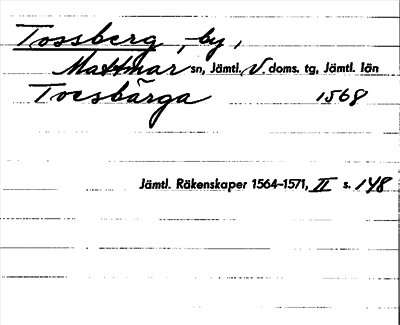 Tossberg, -by,
Mattmar sn, Jämtl. V. doms. tg, Jämtl. län
Toesbärga 1568
Jämtl. Räkenskaper 1564-1571, II s. 148